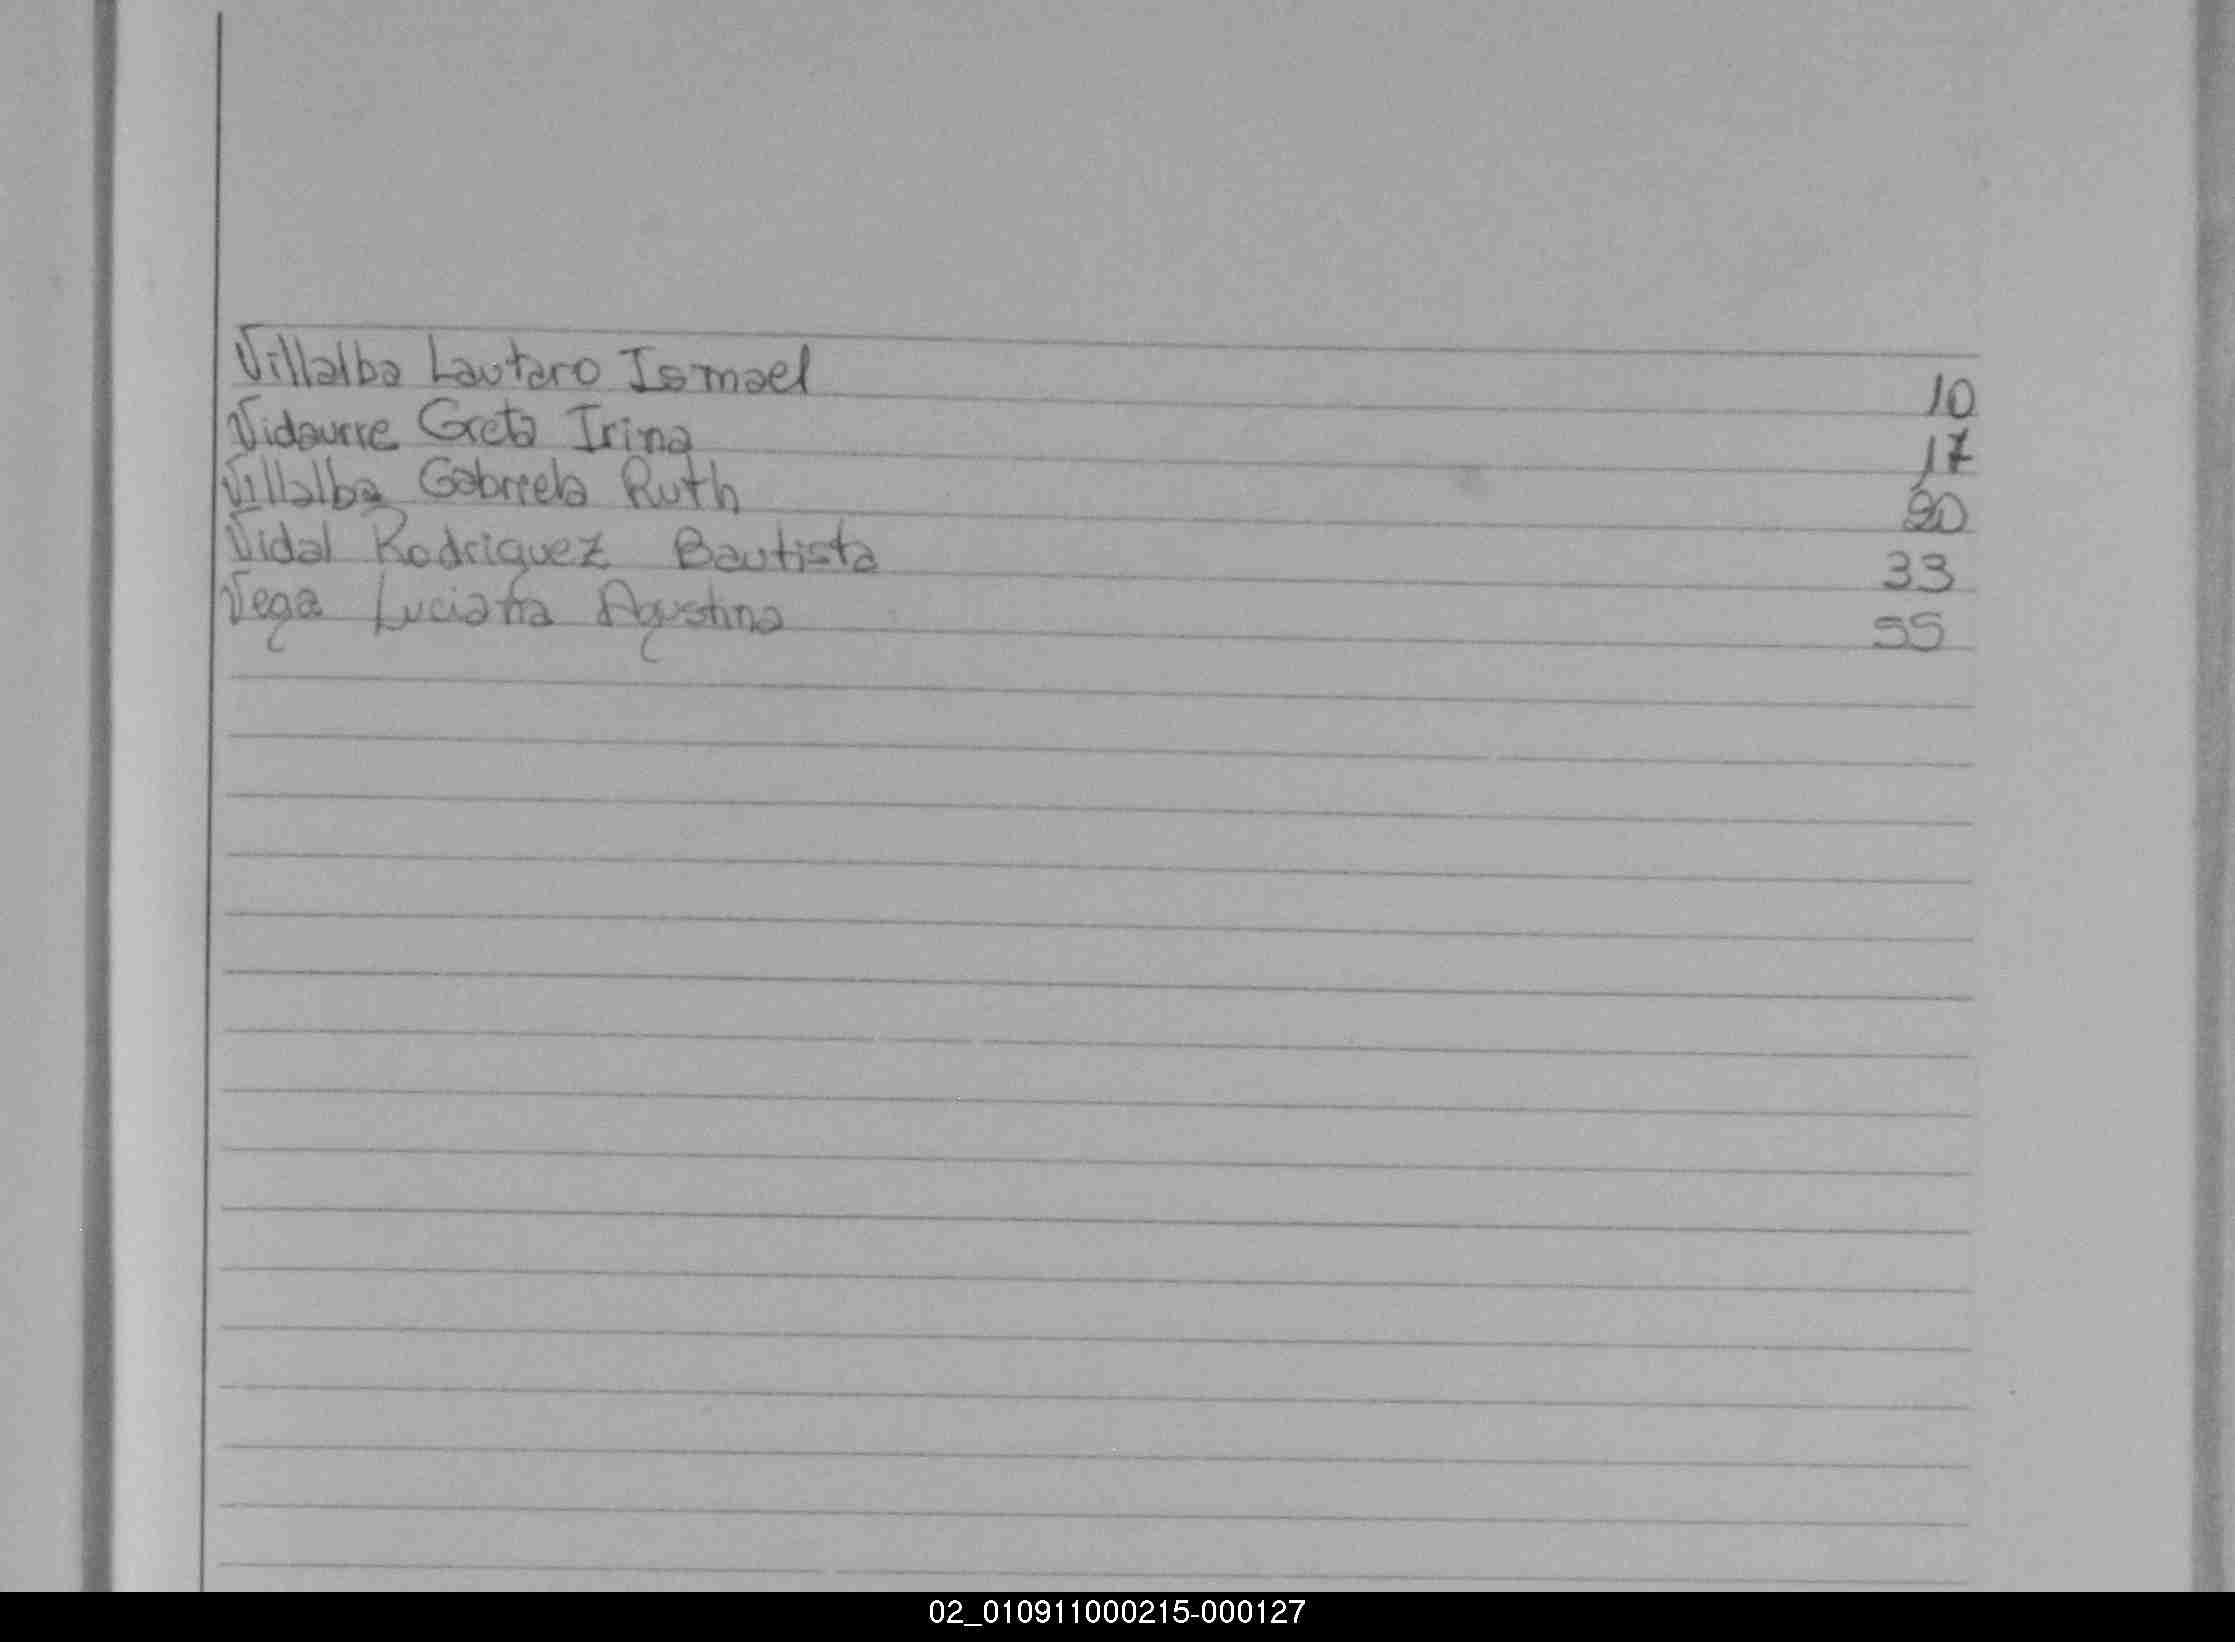 Villalba Lautaro Ismael 10
Vidaurre Greta Irina 17
Villalba Gabriela Ruth 20
Vidal Rodriguez Bautista 33
Vega Luciana Agustina 55
02_010911000215-000127